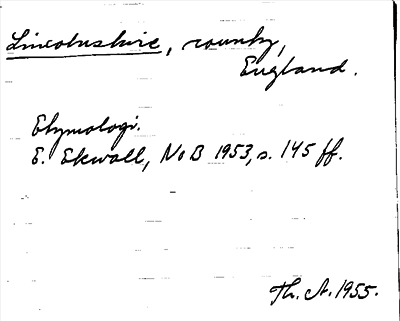 Lincolnshire, county,
England.
Etymologi.
E. Ekwall, NoB 1953, s. 145 ff.
Th. A. 1955.